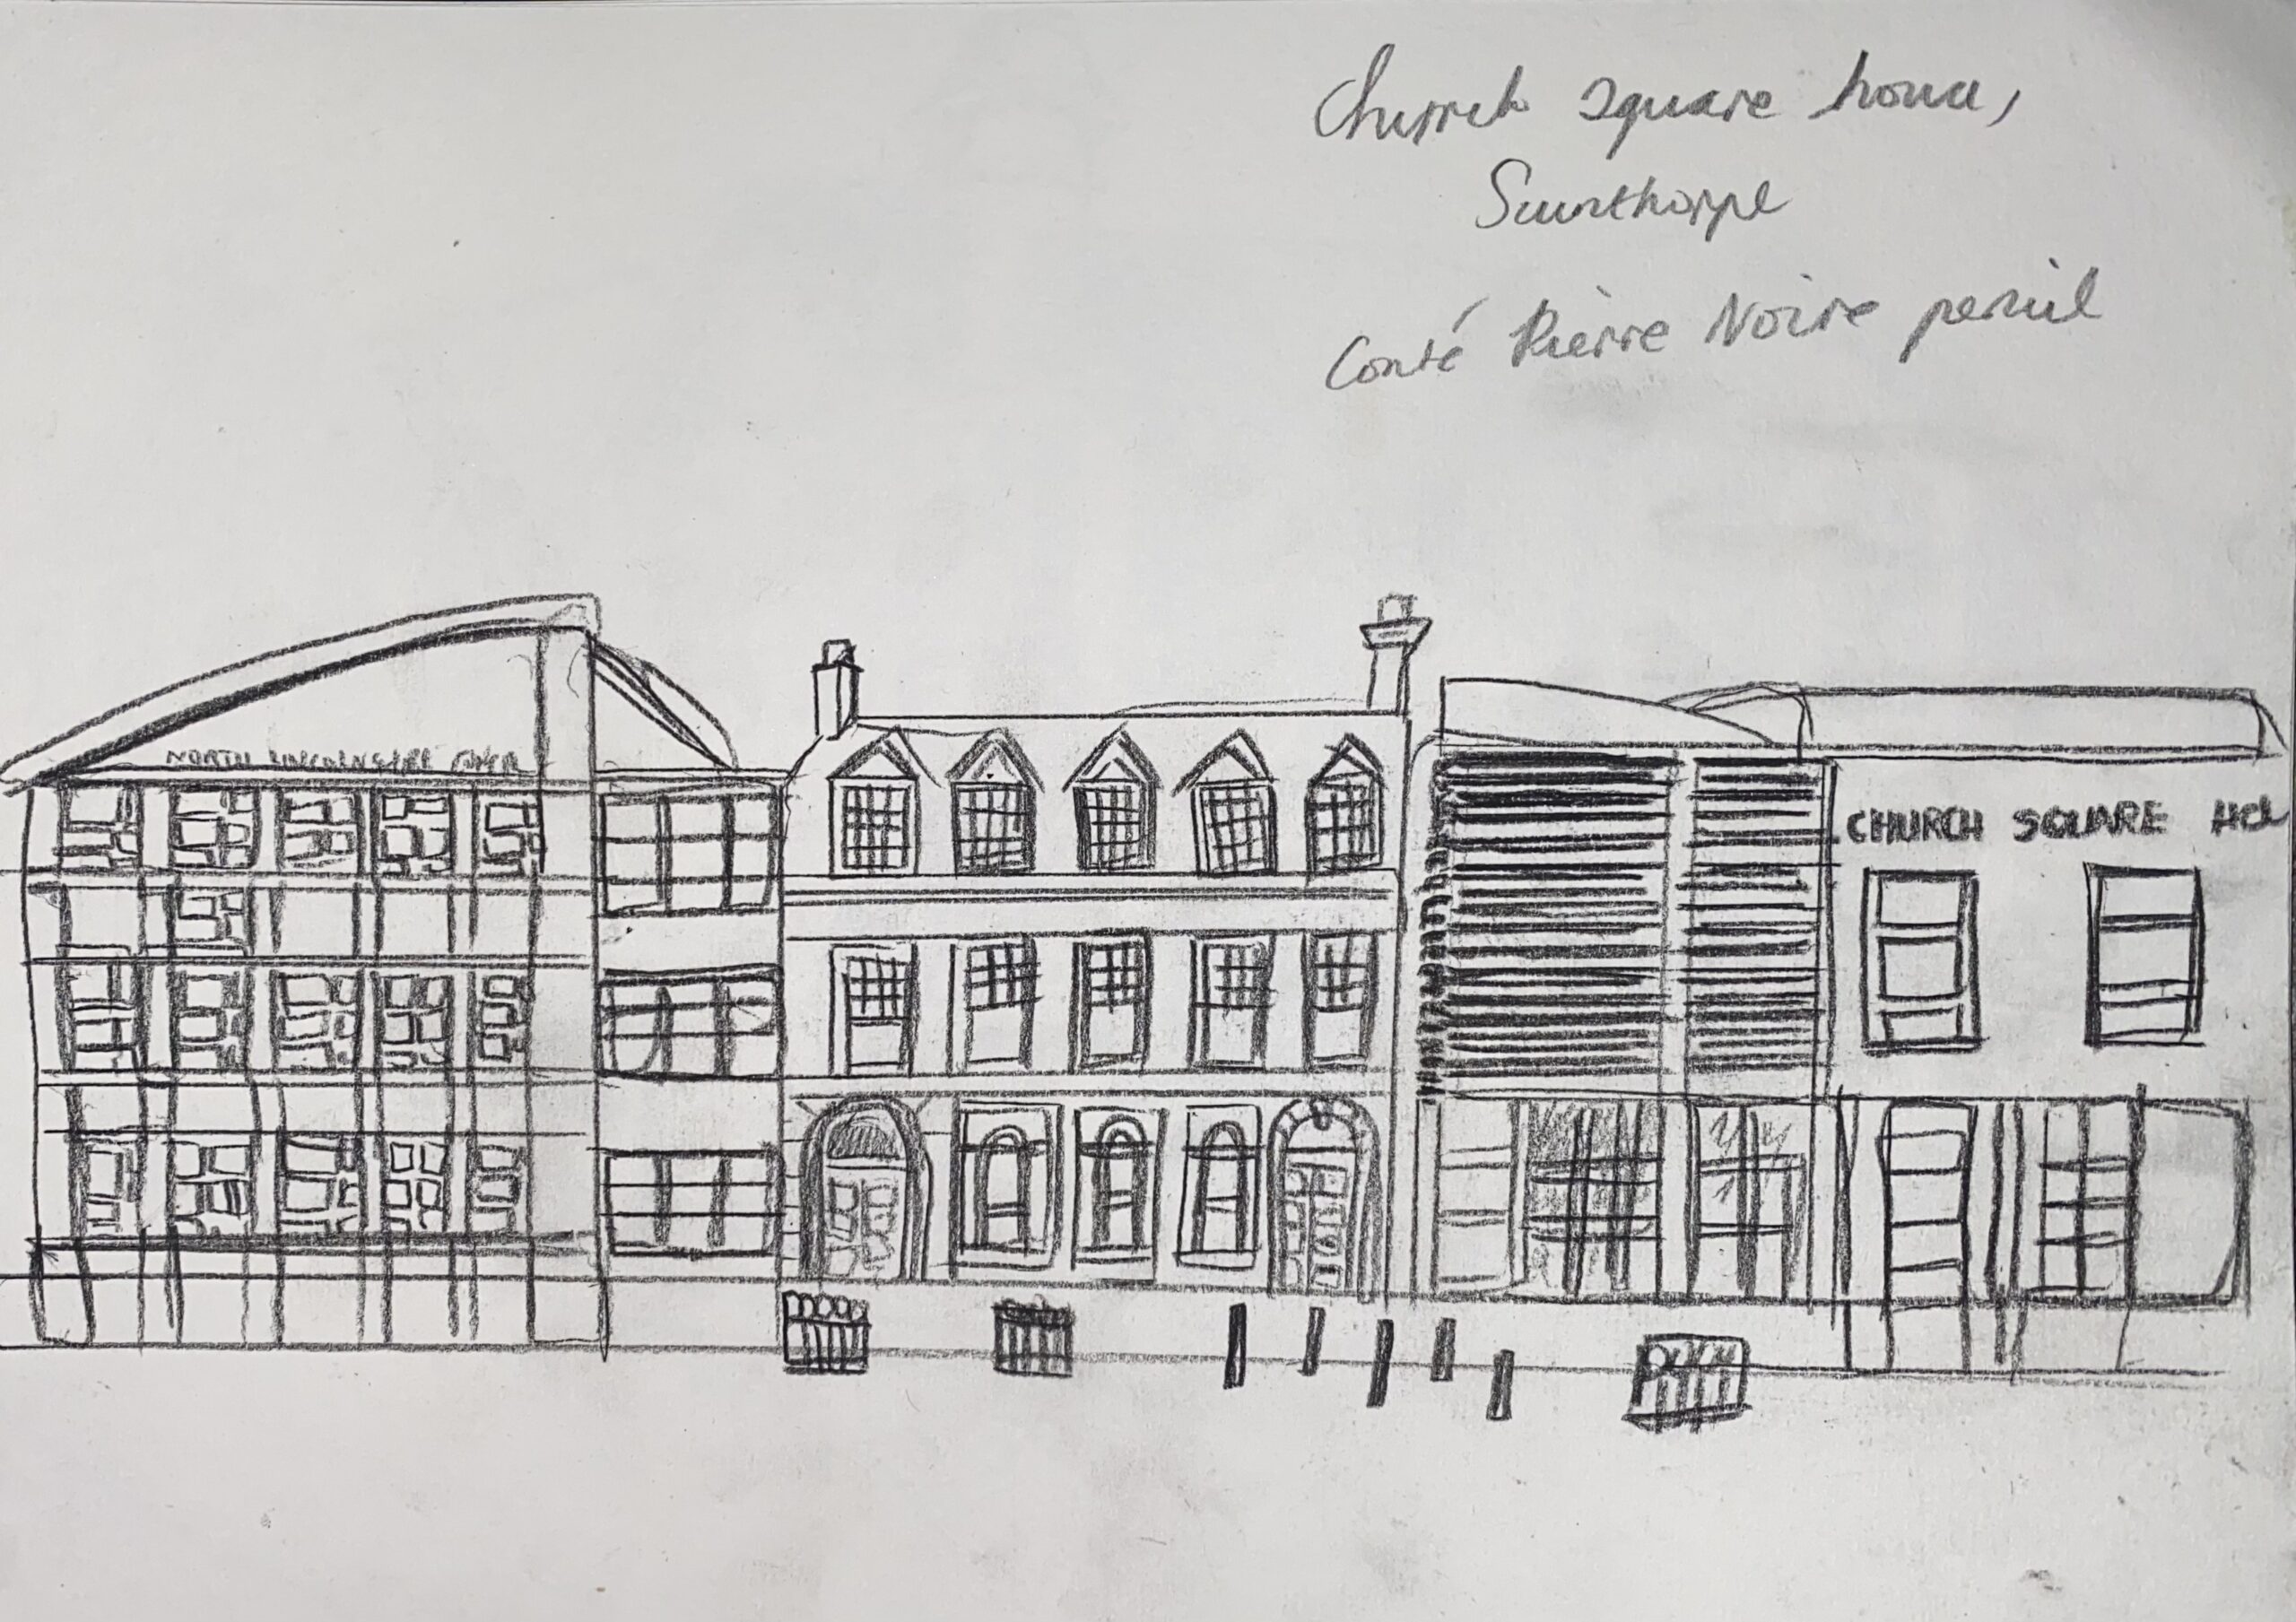 Church square house,
Scunthorpe
Conté Pierre Noire pencil
NORTH LINCOLNSHIRE
CHURCH SQUARE HO